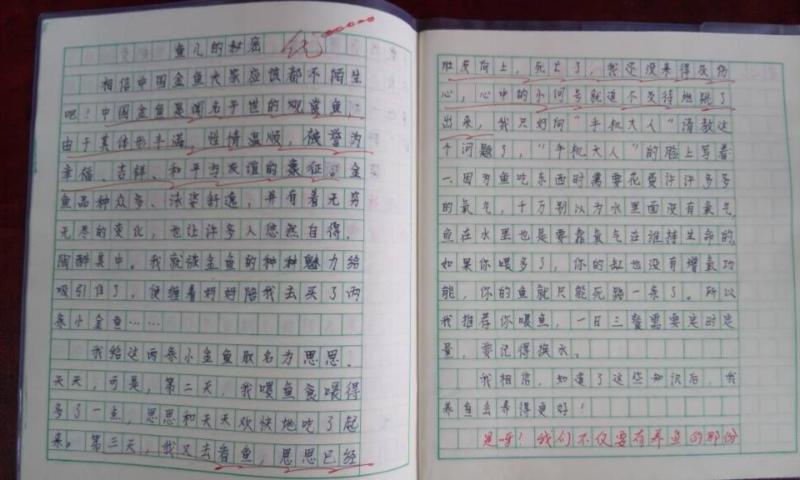 鱼儿的秘密 优
相信中国金鱼大家应该都不陌生
吧！中国金鱼是闻名于世的观赏鱼，
由于其体形丰满，性情温顺，被誉为
幸福、吉祥、和平与友谊的象征。金
鱼品种众多、泳姿舒逸，并有着无穷
无尽的变化，也让许多人悠然自得、
陶醉其中。我就被金鱼的种种魅力给
吸引住了，便缠着妈妈陪我去买了两
条小金鱼……
我给这两条小金鱼取名为思思、
天天，可是，第二天，我喂鱼食喂得
多了一点，思思和天天欢快地吃了起
来。第三天，我又去看鱼，思思已经
肚皮向上，死去了，我还没来得及伤
心，心中的小问号就迫不及待地跳了
出来，我只好向“手机大人”请教这
个问题了，“手机大人”的脸上写着
一因为鱼吃东西时需要花费许许多多
的氧气，千万别以为水里面没有氧气
鱼在水里也是要靠氧气在维持生命的
如果你喂多了，你的缸也没有增氧功
能，你的鱼就只能死路一条了。所以
我推荐你喂鱼，一日三餐需要定时定
量，要记得换水。
我相信，知道了这些知识后，我
养鱼会养得更好！
是呀！我们不仅要有养鱼的那份